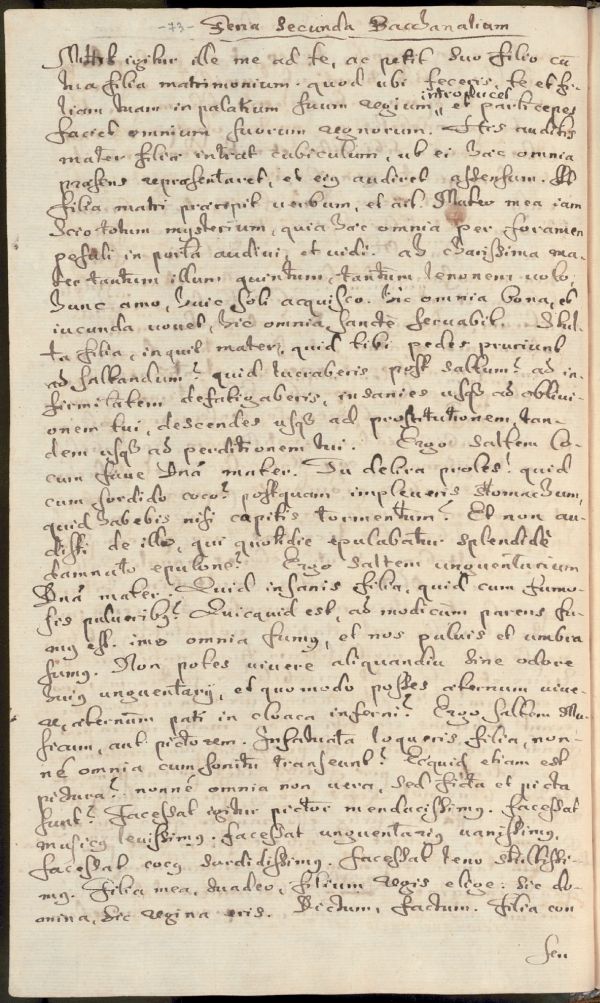 -73- Feria Secunda Bacchanalium
Mittit igitur ille me ad te, ac petit suo filio cū
tua filia matrimonium. quod ubi feceris, te et fi-
introducet
liam tuam in palatium suum regium, et participes
faciet omnium suorum regnorum. Ist̄is auditis
mater filiæ intrat cubiculum, ut ei hæc omnia
præsens repræsentaret, et eiꝰ audiret assensum. At
filia matri præcepit uerbum, et ait. Mater mea iam
scio totum mysterium, quia hæc omnia per foramen
pessuli in porta audiui, et uidi. ah charissima ma-
ter tantum illum quintum, tantum lenonem uolo,
hunc amo, huic soli acquiesco. hic omnia bona, et
iucunda uouet, hic omnia sancte seruabit. Stul-
ta filia, inquit mater, quid tibi pedes pruriunt
ad saltandum? quid lucraberis post saltum? ad in-
firmitatem defatigaberis, insanies usqꝫ ad obliui-
onem tui, descendes usqꝫ ad prostitutionem, tan-
dem usqꝫ ad perditionem tui. Ergo saltem co-
cum faue Dnā mater. Tu delira proles! quid
cum sordido coco? postquam impleueris stomachum,
quid habebis nisi capitis tormentum? Et non au-
disti de illo, qui quotidie epulabatur splendide
damnato epulone? Ergo saltem unguentarium
Dnā mater. Quid insanis filia, quid cum fumo-
sis pulueribꝰ? Quicquid est, ad modicum parens fu-
mꝰ est. imo omnia fumꝰ, et nos puluis et umbra
sumꝰ. Non potes uiuere aliquandiu sine odore
huiꝰ unguentarij, et quomodo posses æternum uiue-
re, æternum pati in cloaca inferni? Ergo saltem Mu-
sicum, aut pictorem. Infatuata loqueris filia, non-
né omnia cum sonitu transeunt? Ecquid etiam est
pictura? nonné omnia non uera, sed ficta et picta
sunt? Facessat igitur pictor mendacissimꝰ. facessat
musicꝰ leuissimꝰ. facessat unguentariꝰ uanissimꝰ.
facessat cocꝰ surdidissimꝰ. facessat leno stultissi-
mꝰ. Filia mea, suadeo, filium regis elige: sic do-
mina, sic regina eris. Dictum, factum. Filia con
sen